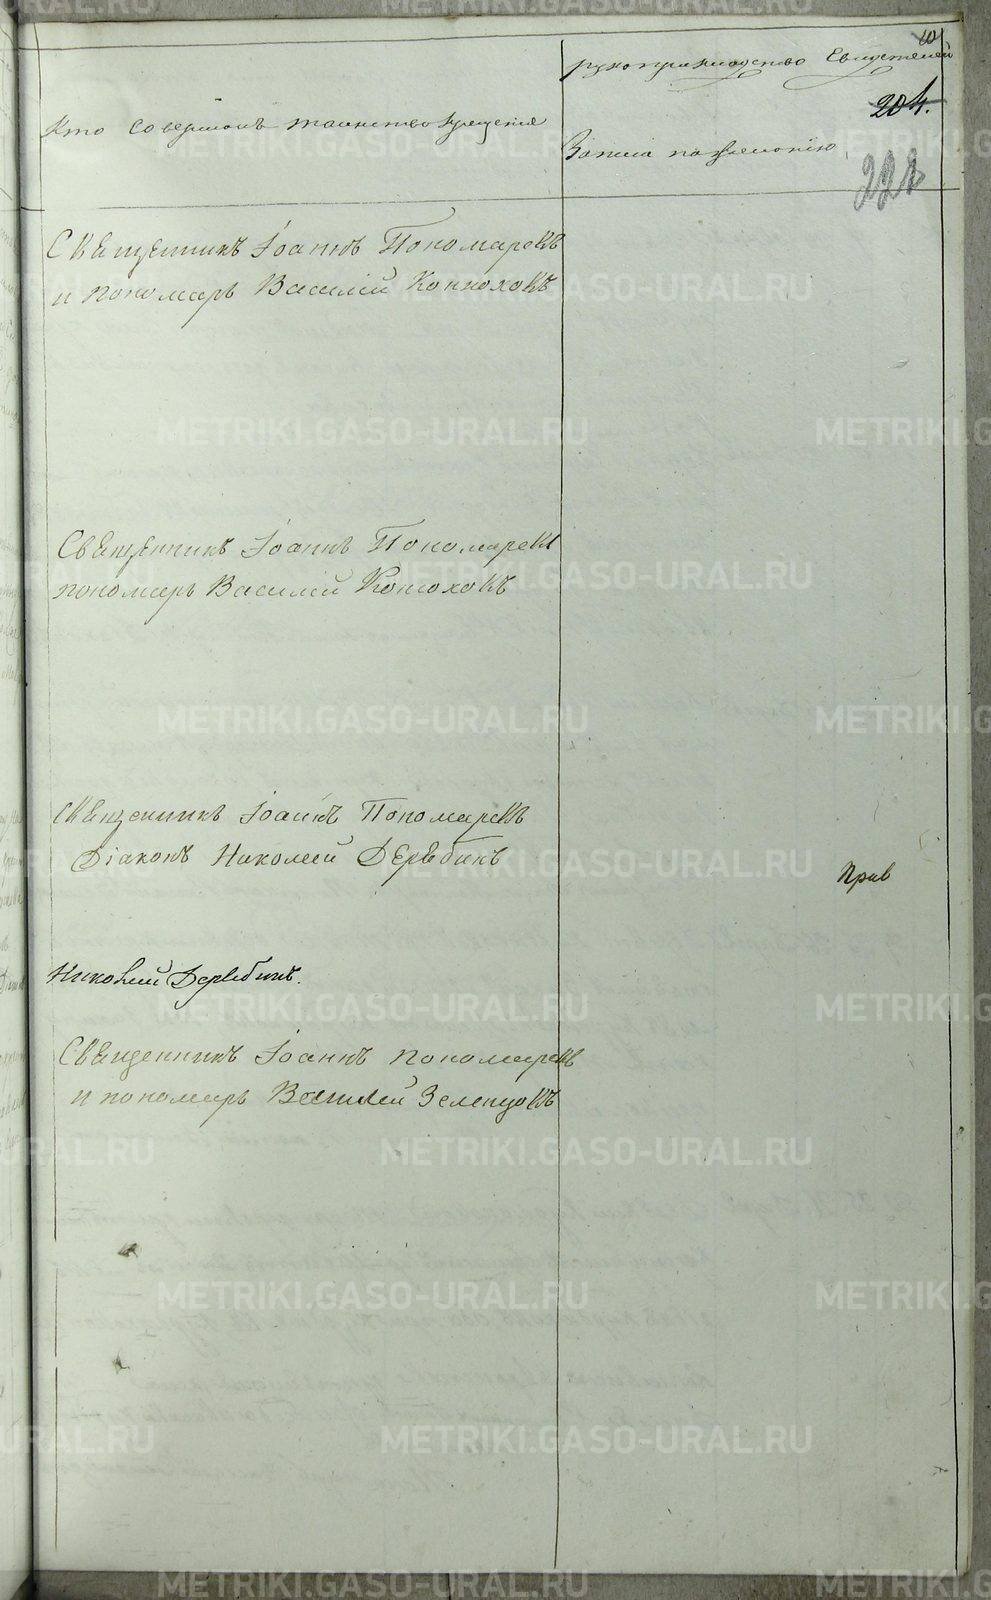 10
рукоприкладство Свидетелей
204.
Кто совершалъ таинство крещенія
Записи по желанію
222
Священникъ Іоаннъ Пономаревъ
и пономарь Василій Конюховъ
Священникъ Іоаннъ Пономаревъ
пономарь Василій Конюховъ
Священникъ Іоаннъ Пономаревъ
Діаконъ Николай Дерябинъ
Прив
Николай Дерябинъ.
Священникъ Іоаннъ Пономаревъ
и пономарь Василей Зеленцовъ
METRIKI.GASO-URAL.RU